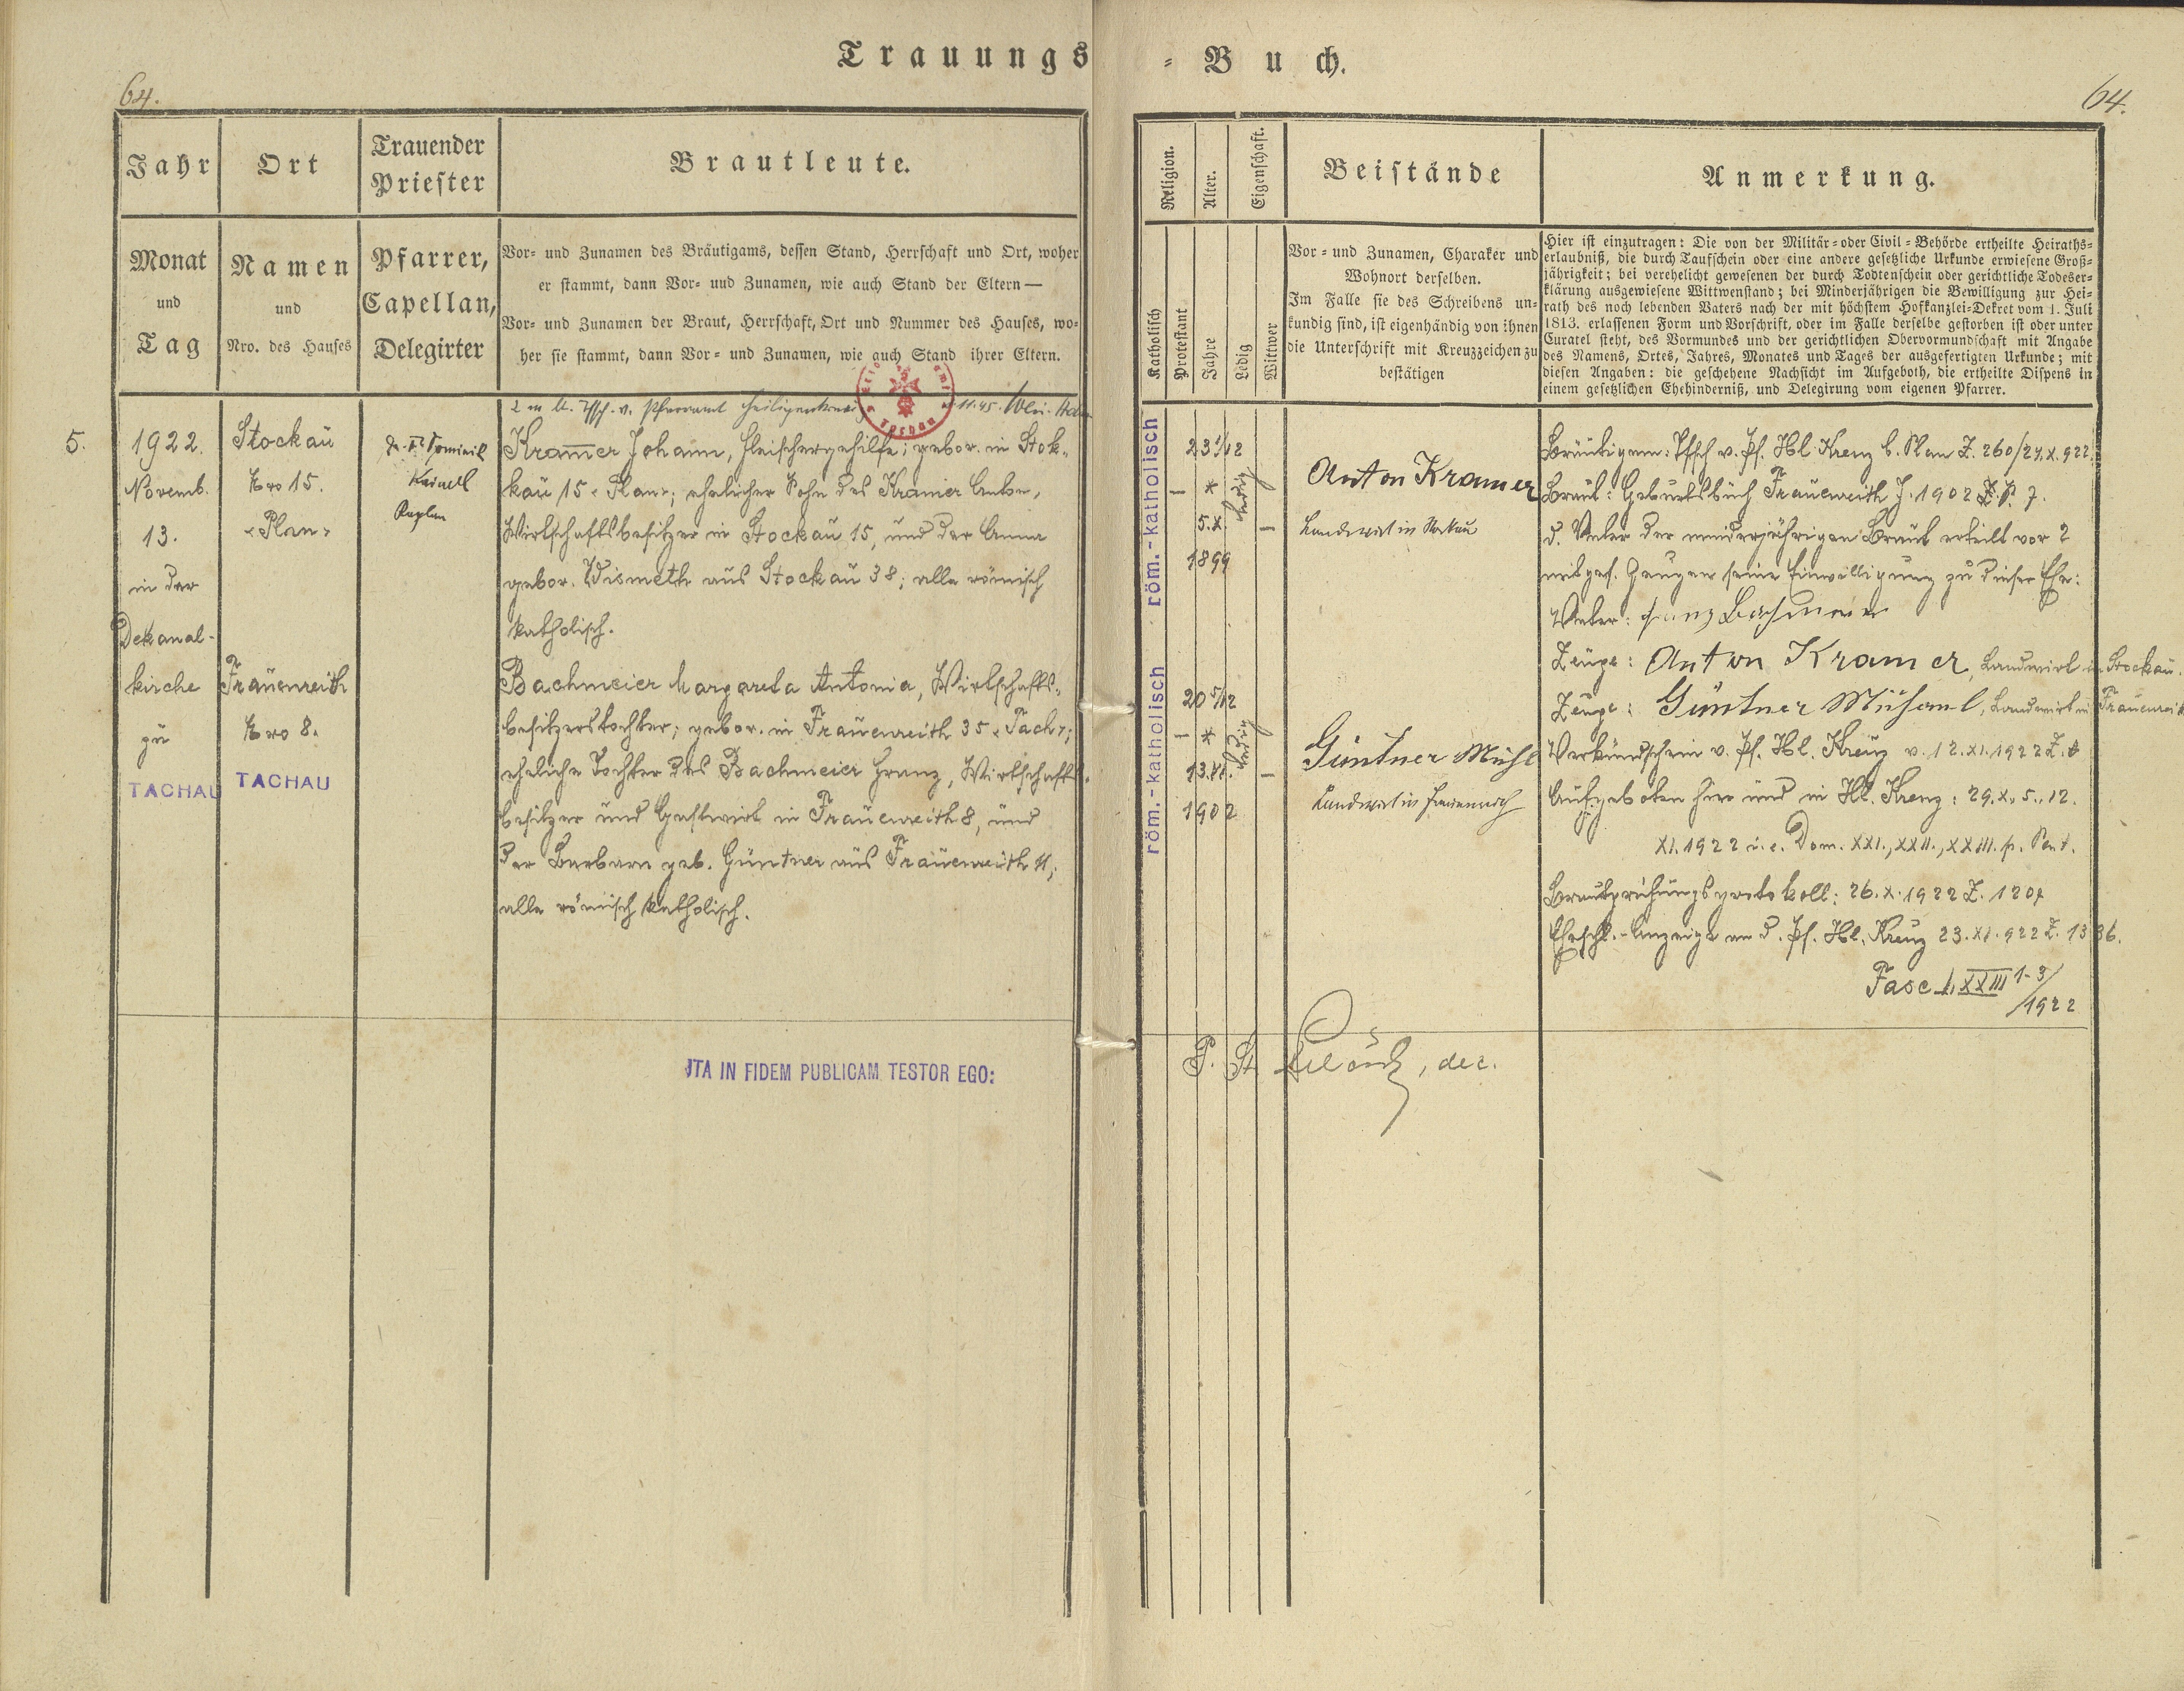 Trauungs
= Buch.
64.
64.
Jahr
Ort
Trauender Priester
Brautleute.
Religion.
Alter.
Eigenschaft.
Beistände
Anmerkung.
Monat
und
Tag
Namen
und
Nro. des Hauses
Pfarrer,
Capellan,
Delegirter
Vor- und Zunamen des Bräutigams, dessen Stand, Herrschaft und Ort, woher
er stammt, dann Vor- uud Zunamen, wie auch Stand der Eltern —
Vor- und Zunamen der Braut, Herrschaft, Ort und Nummer des Hauses, wo-
her sie stammt, dann Vor- und Zunamen, wie auch Stand ihrer Eltern.
Katholisch
Protestant
Jahre
Ledig
Wittwer
Vor- und Zunamen, Charaker und
Wohnort derselben.
Im Falle sie des Schreibens un-
kundig sind, ist eigenhändig von ihnen
die Unterschrift mit Kreuzzeichen zu
bestätigen
Hier ist einzutragen: Die von der Militär- oder Civil-Behörde ertheilte Heiraths-
erlaubniß, die durch Taufschein oder eine andere gesetzliche Urkunde erwiesene Groß-
jährigkeit; bei verehelicht gewesenen der durch Todtenschein oder gerichtliche Todeser-
klärung ausgewiesene Wittwenstand; bei Minderjährigen die Bewilligung zur Hei-
rath des noch lebenden Vaters nach der mit höchstem Hofkanzlei-Dekret vom 1. Juli
1813. erlassenen Form und Vorschrift, oder im Falle derselbe gestorben ist oder unter
Curatel steht, des Vormundes und der gerichtlichen Obervormundschaft mit Angabe
des Namens, Ortes, Jahres, Monates und Tages der ausgefertigten Urkunde; mit
diesen Angaben: die geschehene Nachsicht im Aufgeboth, die ertheilte Dispens in
einem gesetzlichen Ehehinderniß, und Delegirung vom eigenen Pfarrer.
v. Pfarramt Heiligenkreuz 11.45.
5.
1922.
Novemb.
13.
in der
Dekanal-
kirche
zu
TACHAU
Stockau
Nro 15.
"Plan"
Frauenreith
Nro 8.
TACHAU
Dominik
Kaplan
Kramer Johann, Fleischergehilfe; gebor. in Stok-
kau 15 "Plan"; ehelicher Sohn des Kramer Anton,
Wirtschaftsbesitzer in Stockau 15, und der Anna
gebor. Wismeth aus Stockau 38; alle römisch
katholisch.
Bachmeier Margareta Antonia, Wirtschafts-
besitzerstochter; gebor. in Frauenreith 35 "Tach";
eheliche Tochter des Bachmeier Franz, Wirtschafts-
besitzer und Gastwirt in Frauenreith 8, und
der Barbara geb. Güntner aus Frauenreith 11;
alle römisch katholisch.
röm.-katholisch
23 1/12
*
5.X.
1899
ledig
röm.-katholisch
20 5/12
*
13.
1902
ledig
Anton Kramer
Landwirt in Stokau
Güntner
Landwirt in Frauenreith
Bräutigam: Tfsch v. Pf. Hl. Kreuz b. Plan Z. 260/24.X.922.
Braut: Geburtsbuch Frauenreith J. 1902 P. 7.
D. Vater der minderjährigen Braut erteilt vor 2
Zeugen seine Einwilligung zu dieser Ehe:
Vater: Franz Bachmeier
Zeuge: Anton Kramer, Landwirt in Stockau.
Zeuge: Güntner, Landwirt in Frauenreith
Verkündschein v. Pf. Hl. Kreuz v. 12.XI.1922 Z.
Aufgeboten hier und in Hl. Kreuz: 29.X., 5., 12.
XI.1922 i. e. Dom. XXI., XXII., XXIII. p. Pent.
Brautprüfungsprotokoll: 26.X.1922 Z. 1204
Ehschl.-Anzeige an d. Pf. Hl. Kreuz 23.XI.922 Z. 1336.
Fasc XXIII 1-3/1922
ITA IN FIDEM PUBLICAM TESTOR EGO:
P. St. dec.